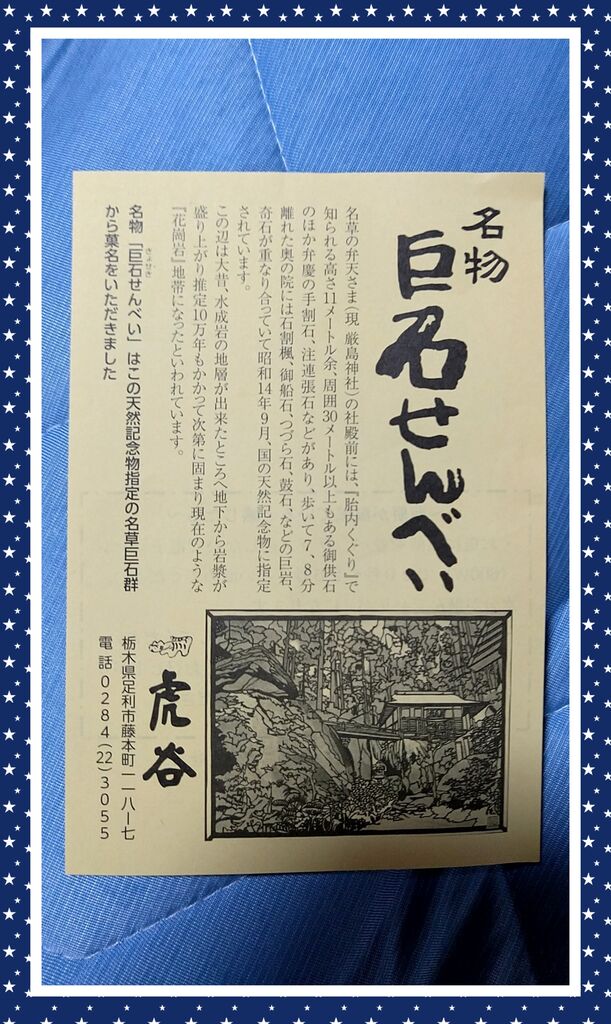 名物
巨石せんべい
名草の弁天さま（現 厳島神社）の社殿前には、『胎内くぐり』で
知られる高さ11メートル余、周囲30メートル以上もある御供石
のほか弁慶の手割石、注連張石などがあり、歩いて7、8分
離れた奥の院には石割楓、御船石、つづら石、鼓石、などの巨岩、
奇石が重なり合っていて昭和14年9月、国の天然記念物に指定
されています。
この辺は大昔、水成岩の地層が出来たところへ地下から岩漿が
盛り上がり推定10万年もかかって次第に固まり現在のような
『花崗岩』地帯になったといわれています。
名物「巨石せんべい」はこの天然記念物指定の名草巨石群
きょせき
から菓名をいただきました
虎谷
栃木県足利市藤本町一一八ー七
電話0284(22)3055